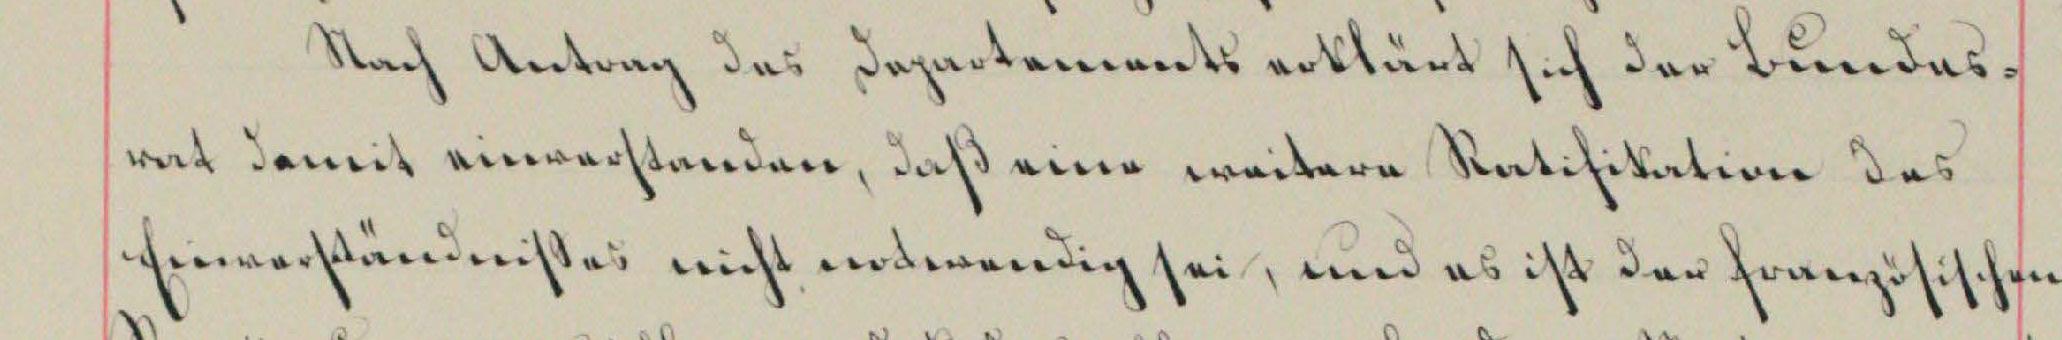 Nach Antrag des Departements erklärt sich der Bundes-
rat damit einverstanden, daß eine weitere Ratifikation des
Einverständnisses nicht notwendig sei, und es ist der französischen